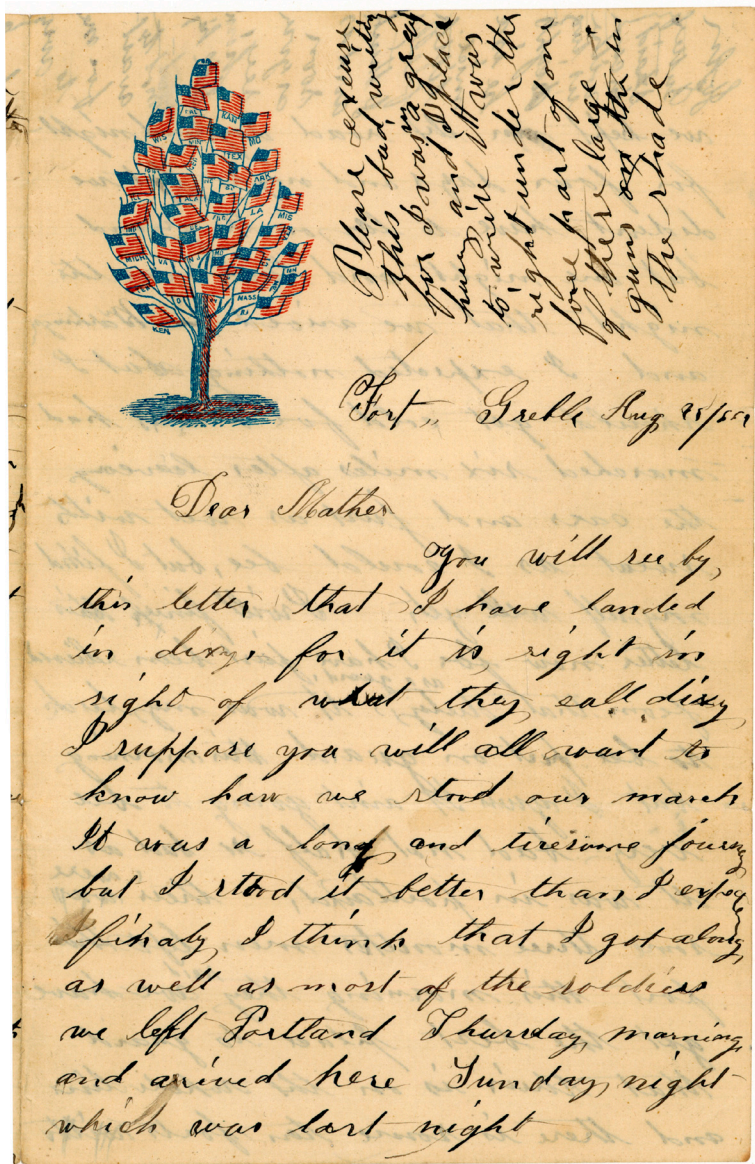 Please excuse
this bad writing
for I was in a great
hurry and I place
to write it was
right under the
fore part of one
of there large
guns on the in
the shade
THE
KAN
WIS
MO
TEX
ARK
LA
MIS
MICH
VA
MASS
KEN
Fort,, Greble Aug 25/
Dear Mother
you will see by,
this letter that I have landed
in dixy, for it is, right in
sight of what they, call dixy,
I suppose you will all want to
know how we stood our march
It was a long, and tiresome journey
but I stood it better than I expected
I finaly, I think that I got along,
as well as most of the soldiers
we left Portland Thursday, morning,
and arived here Sunday, night
which was last night